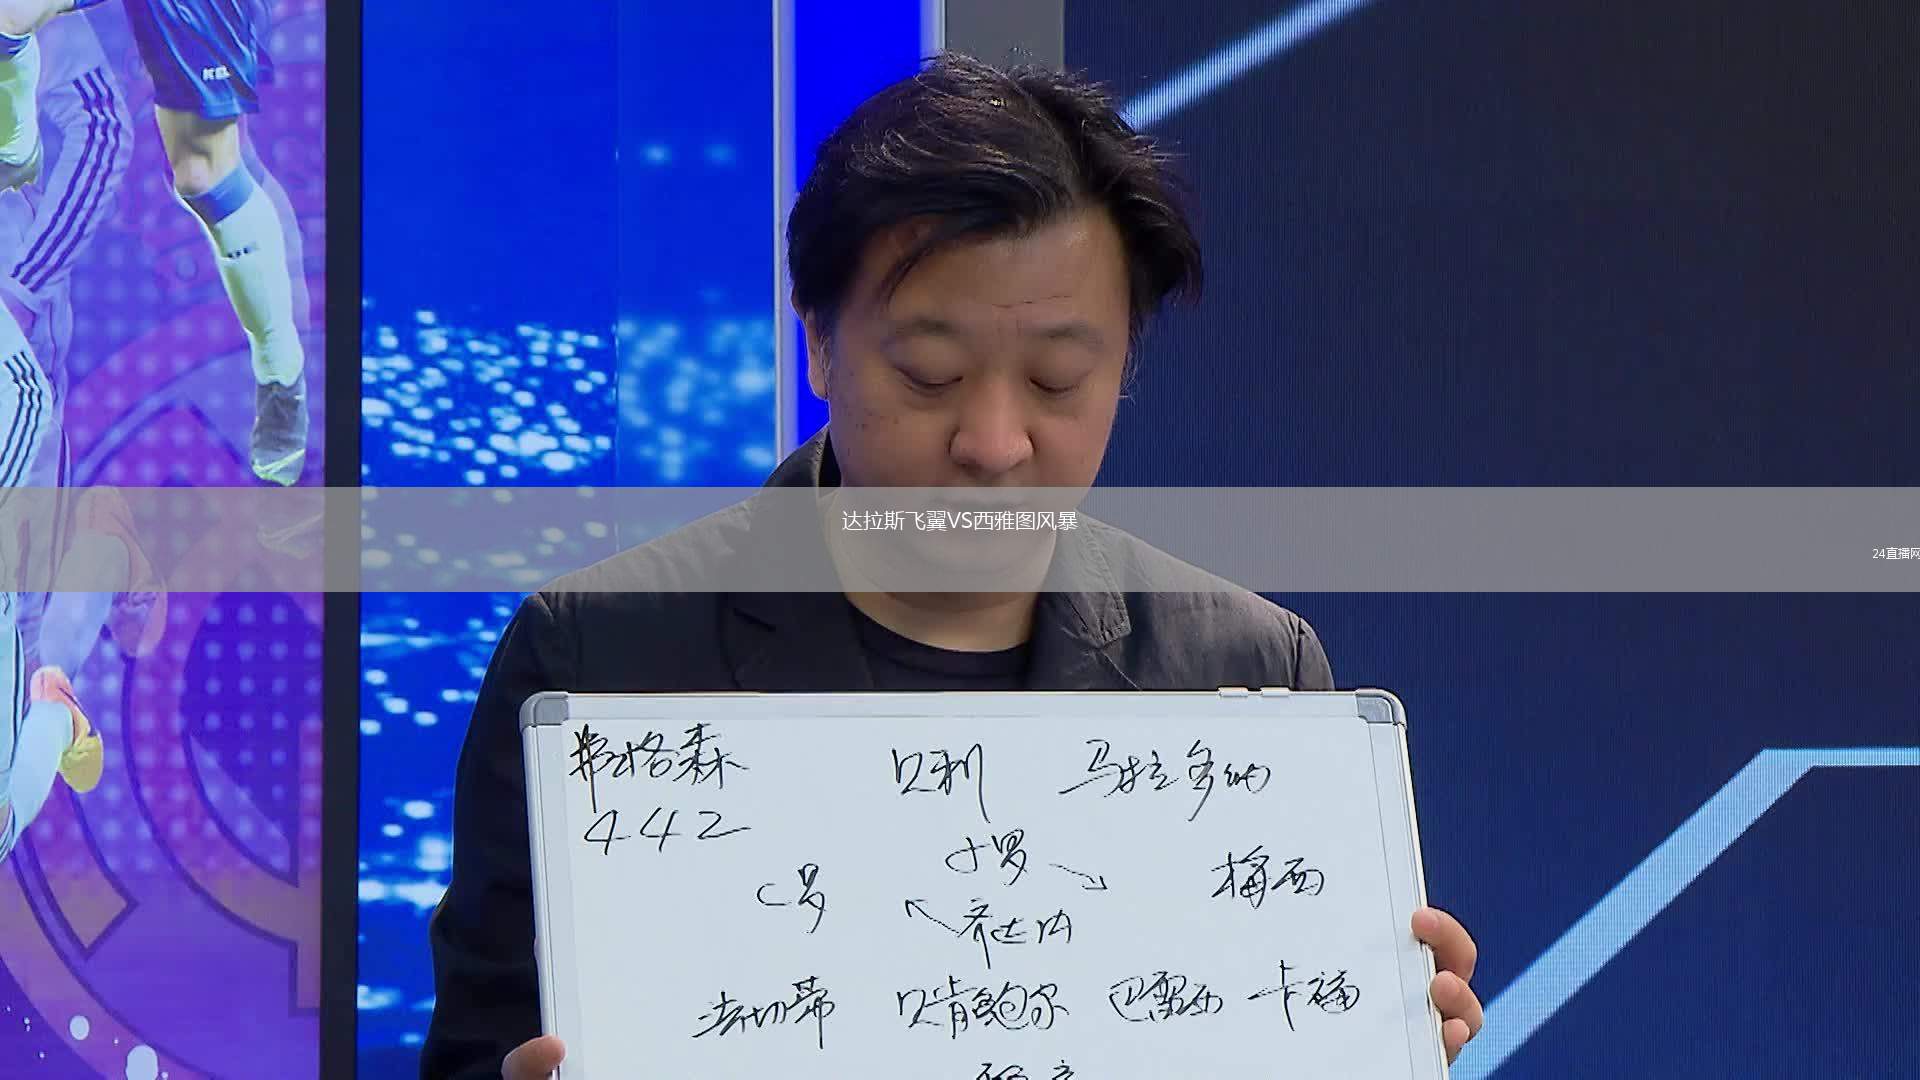 达拉斯飞翼VS西雅图风暴
24直播网
弗格森 贝利 马拉多纳
442
小罗
C罗 梅西
齐达内
法切蒂 贝肯鲍尔 巴雷西 卡福